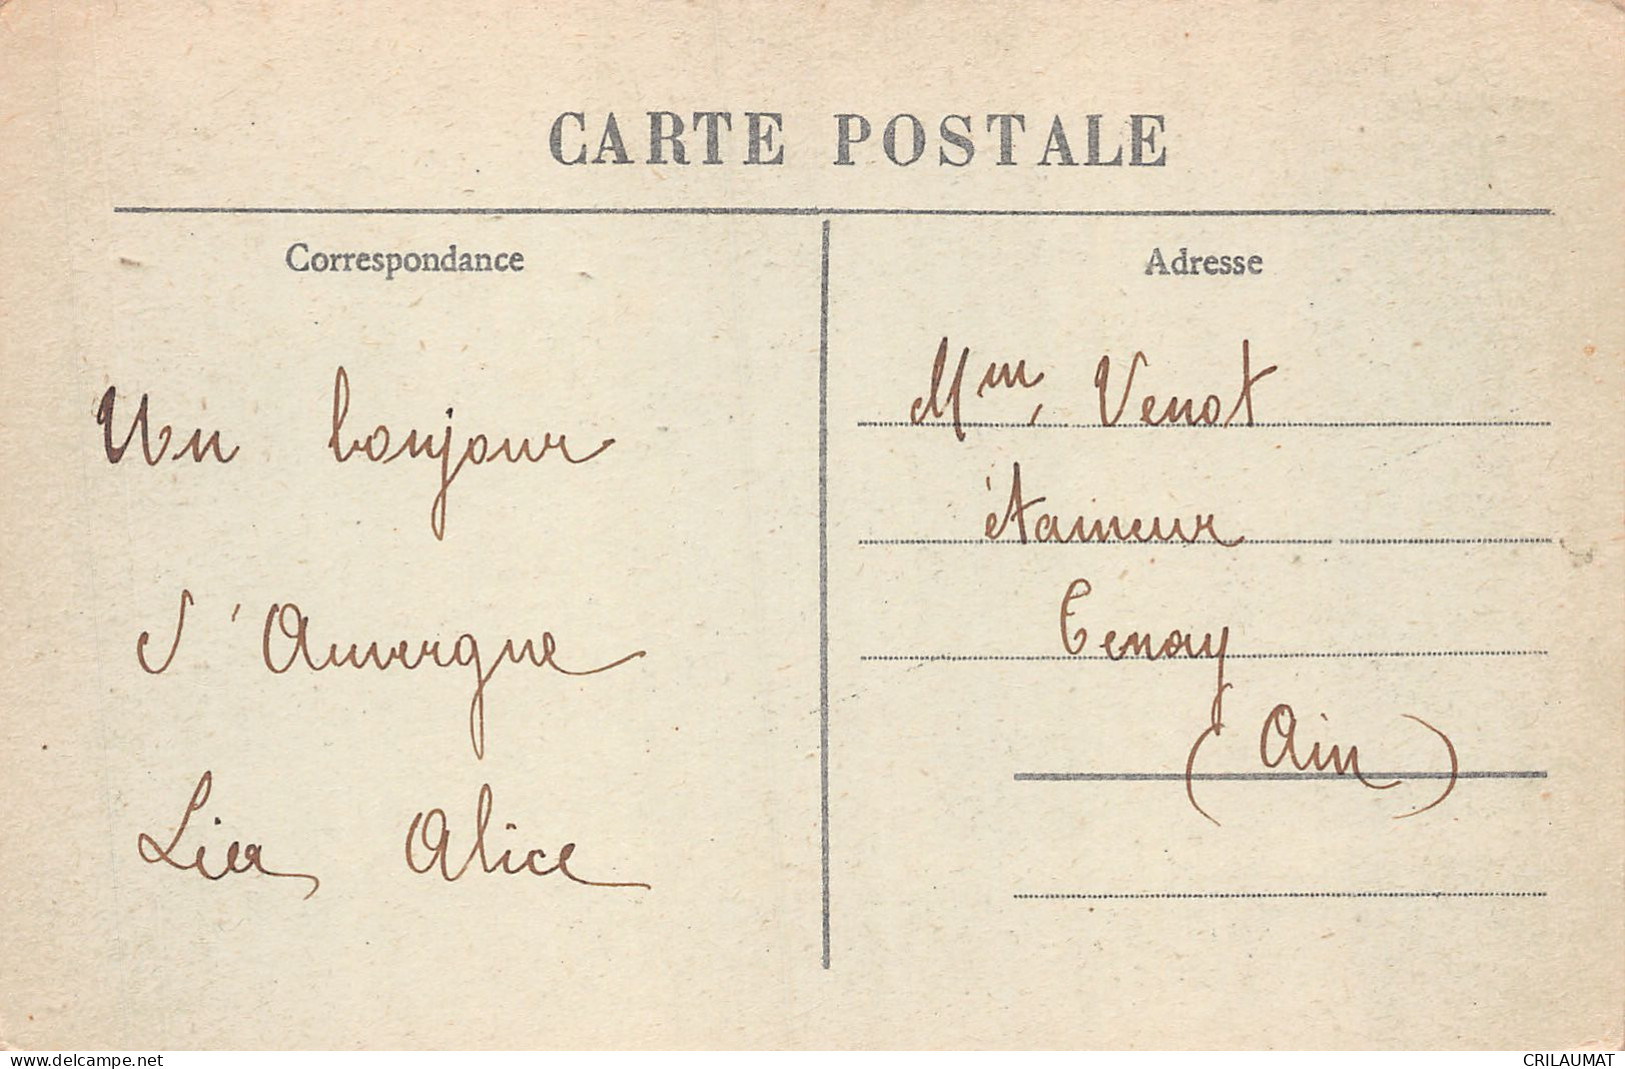 CARTE POSTALE
Correspondance
Un bonjour
d'Auvergne
Alice
Adresse
Mm, Venot
étameur
Tenay
(Ain)
delcampe.net
CRILAUMAT